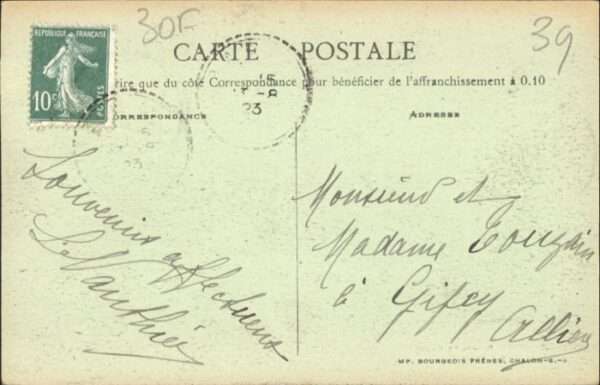 30F
39
RÉPUBLIQUE FRANÇAISE
10c
POSTES
CARTE POSTALE
rire que du côté Correspondance pour bénéficier de l'affranchissement à 0.10
CORRESPONDANCE
ADRESSE
15
-8
23
23
Souvenirs affectueux
Monsieur et
Madame
à Gipcy
Allier
MP. BOURGEOIS FRÈRES, CHALON-S.-S.